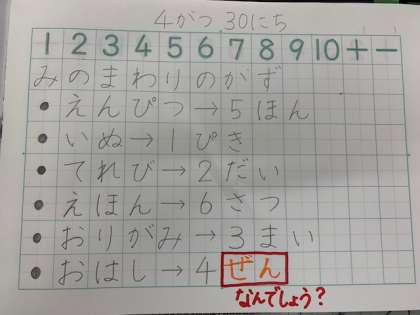 4がつ30にち
1 2 3 4 5 6 7 8 9 10 + -
みのまわりのかず
● えんぴつ→5ほん
● いぬ→1ぴき
● てれび→2だい
● えほん→6さつ
● おりがみ→3まい
● おはし→4ぜん
なんでしょう?